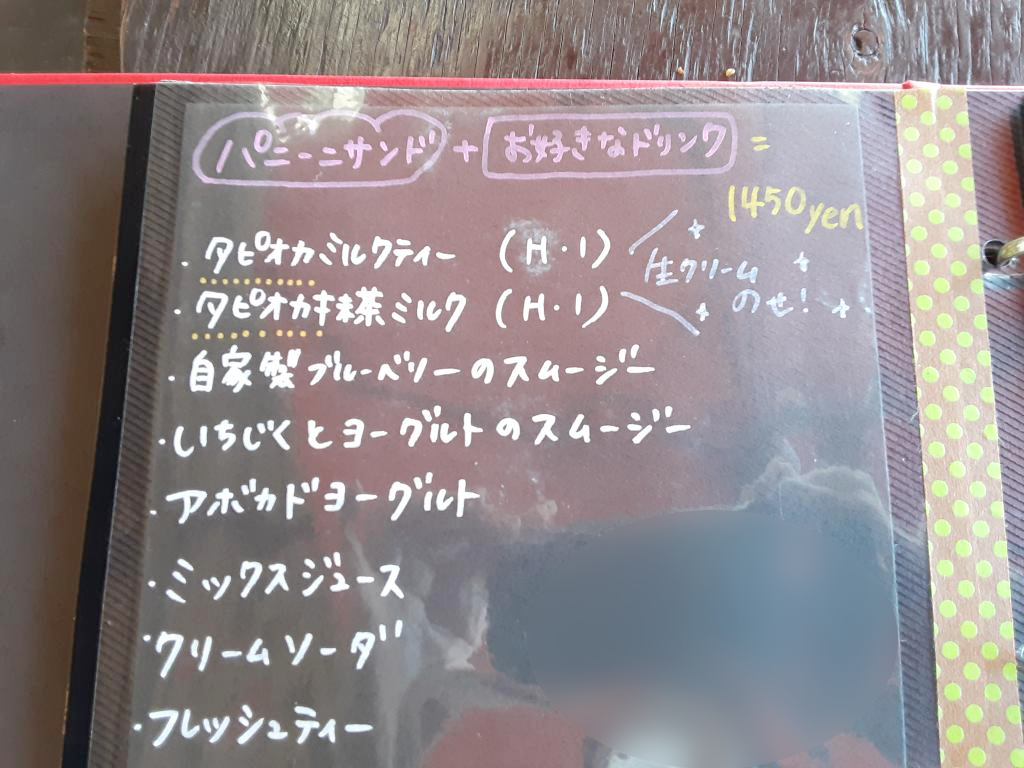 パニーニサンド + お好きなドリンク =
1450yen
・タピオカミルクティー (H・I)
・タピオカ抹茶ミルク (H・I)
生クリーム
のせ!
・自家製ブルーベリーのスムージー
・いちじくとヨーグルトのスムージー
・アボカドヨーグルト
・ミックスジュース
・クリームソーダ
・フレッシュティー